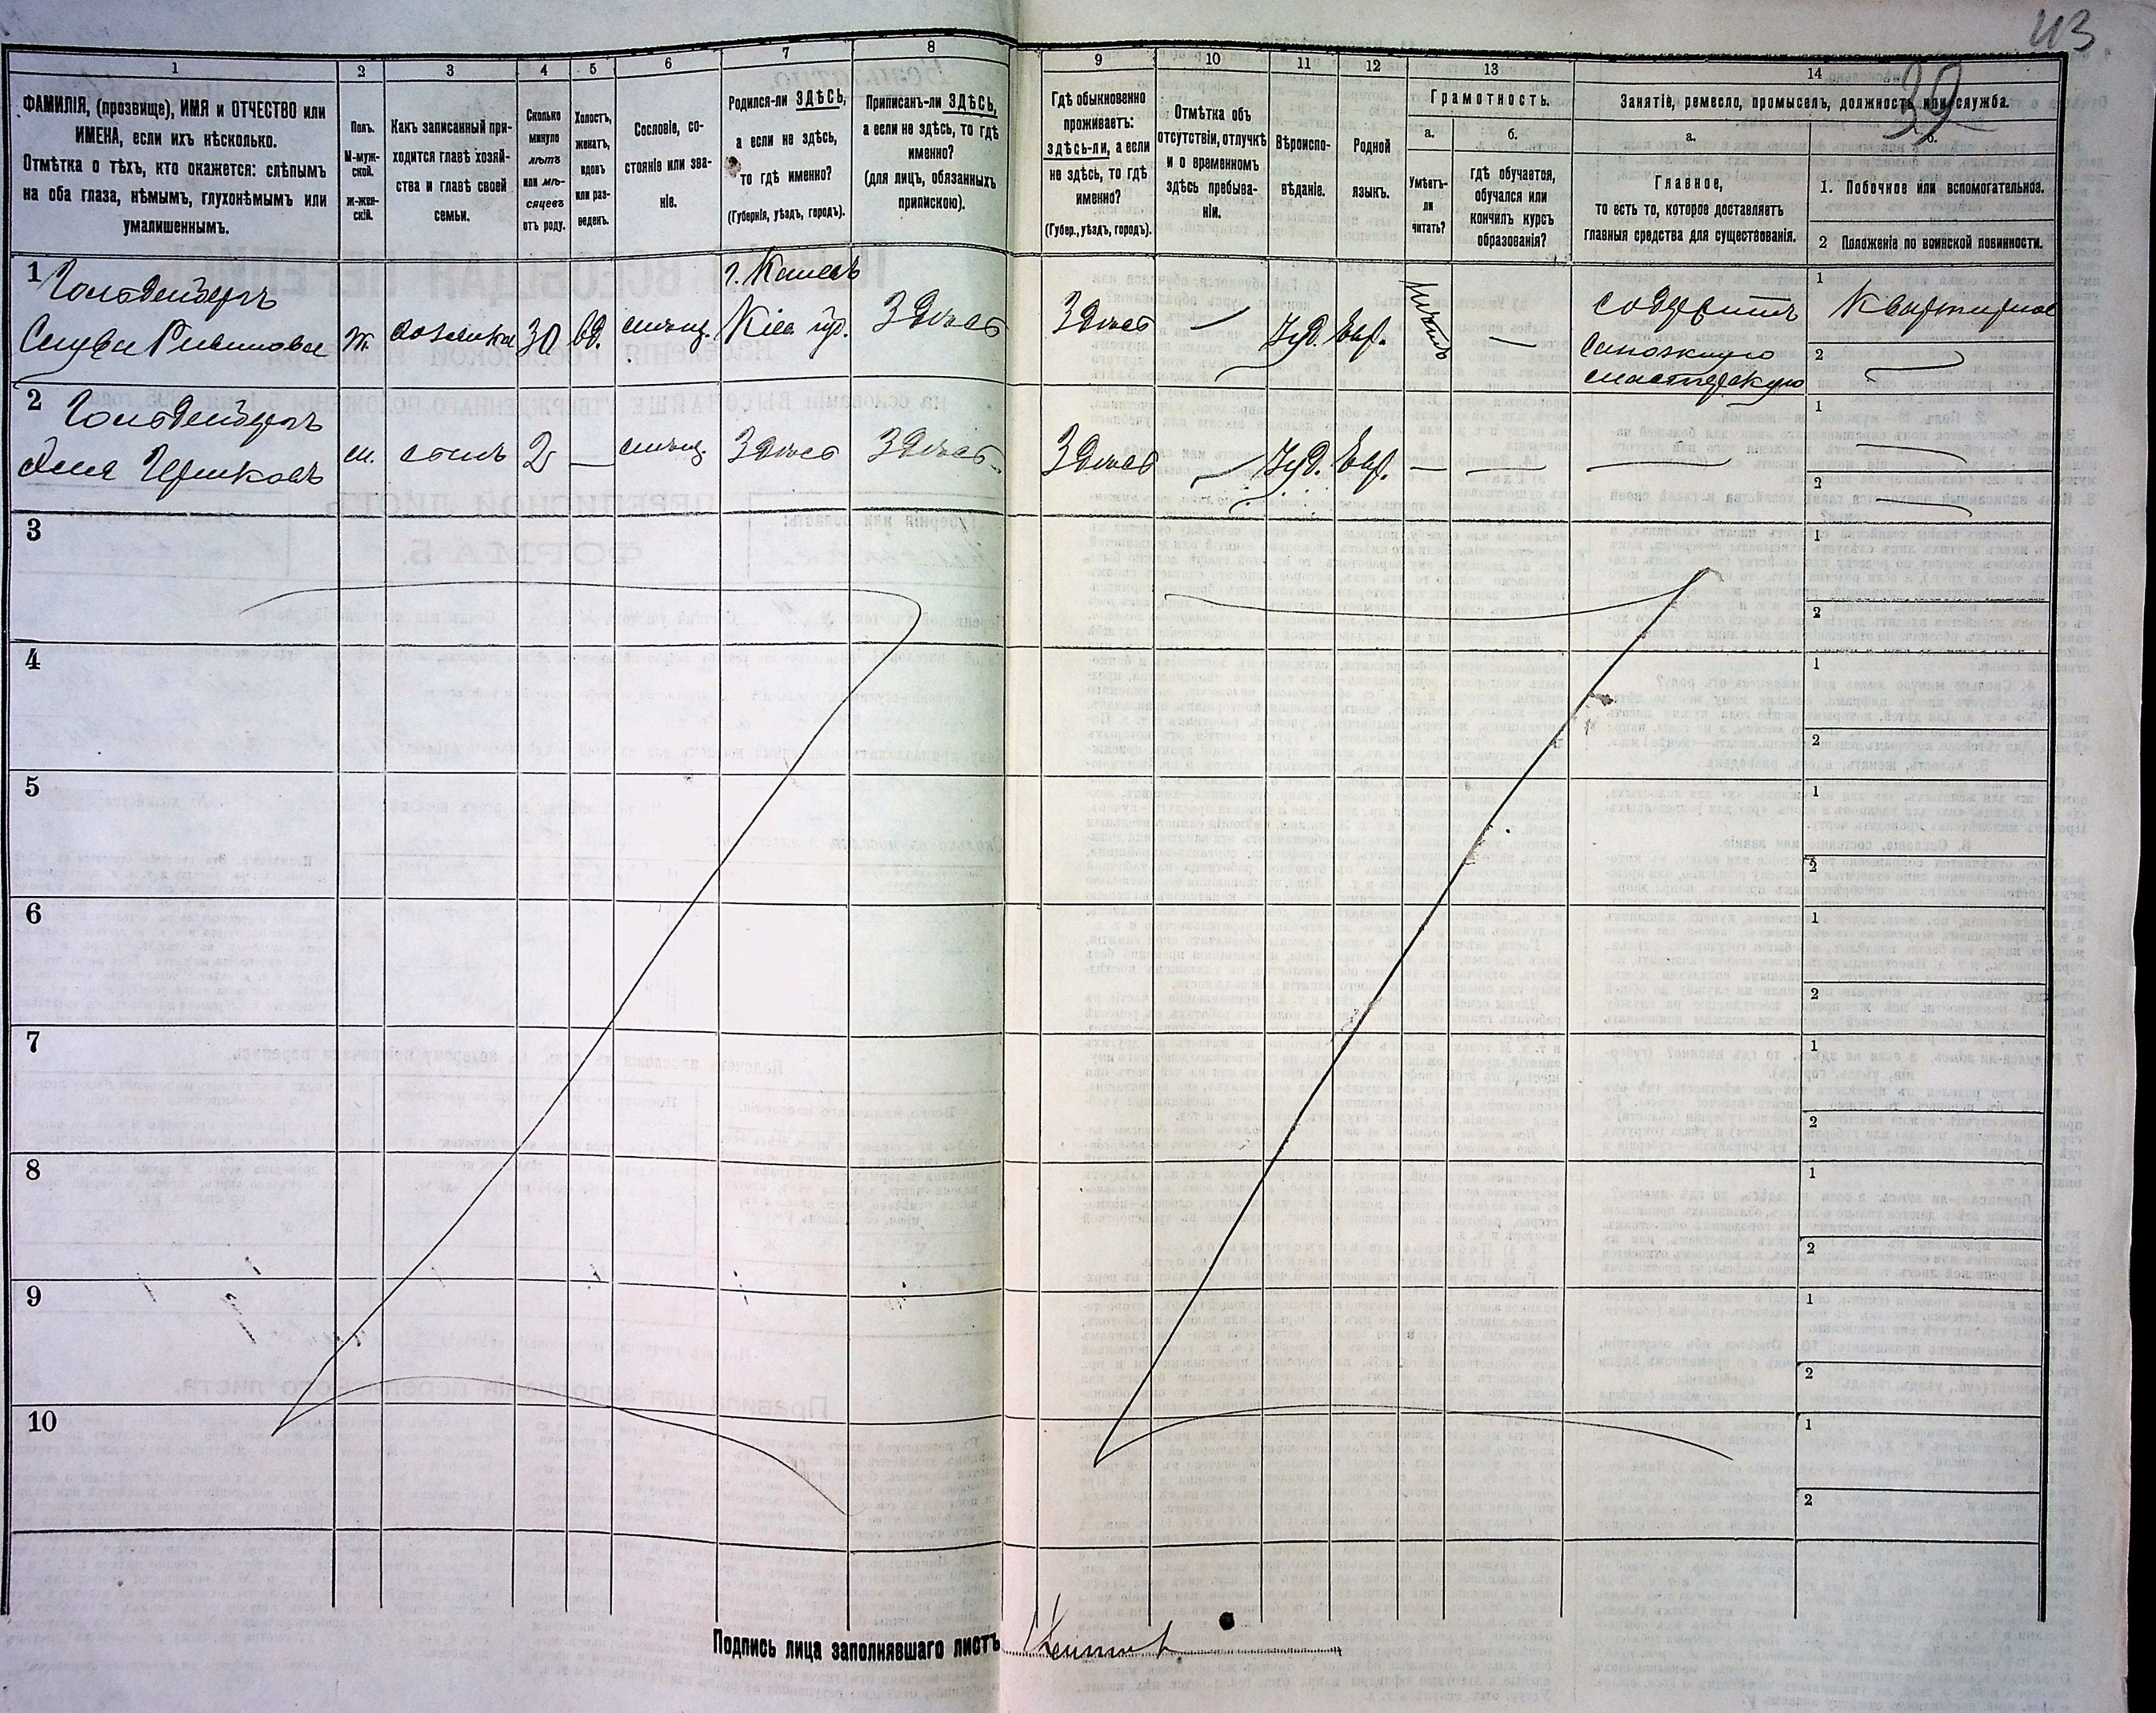 43
39
1
2
3
4
5
6
7
8
9
10
11
12
13
14
ФАМИЛІЯ, (прозвище), ИМЯ и ОТЧЕСТВО или
ИМЕНА, если ихъ нѣсколько.
Отмѣтка о тѣхъ, кто окажется: слѣпымъ
на оба глаза, нѣмымъ, глухонѣмымъ или
умалишеннымъ.
Полъ.
М-муж-
ской.
ж-жен-
скій.
Какъ записанный при-
ходится главѣ хозяй-
ства и главѣ своей
семьи.
Сколько
минуло
лѣтъ
или мѣ-
сяцевъ
отъ роду.
Холостъ,
женатъ,
вдовъ
или раз-
веденъ.
Сословіе, со-
стояніе или зва-
ніе.
Родился-ли ЗДѢСЬ,
а если не здѣсь,
то гдѣ именно?
(Губернія, уѣздъ, городъ).
Приписанъ-ли ЗДѢСЬ,
а если не здѣсь, то гдѣ
именно?
(для лицъ, обязанныхъ
припискою).
Гдѣ обыкновенно
проживаетъ:
здѣсь-ли, а если
не здѣсь, то гдѣ
именно?
(Губер., уѣздъ, городъ).
Отмѣтка объ
отсутствіи, отлучкѣ
и о временномъ
здѣсь пребыва-
ніи.
Вѣроиспо-
вѣданіе.
Родной
языкъ.
Грамотность.
а.
б.
Умѣетъ-
ли
читать?
гдѣ обучается,
обучался или
кончилъ курсъ
образованія?
Занятіе, ремесло, промыселъ, должность или служба.
а.
б.
Главное,
то есть то, которое доставляетъ
главныя средства для существованія.
1. Побочное или вспомогательное.
2 Положеніе по воинской повинности.
1
Гольденберг
ж
хозяйка
30
вд.
мѣщ.
г. Каневъ
Кіев губ.
Здѣсь
Здѣсь
—
Іуд.
Евр.
—
содержитъ
Сапожную
мастерскую
1
2
2
Гольденберг
м.
сынъ
2
—
мѣщ.
Здѣсь
Здѣсь
Здѣсь
—
Іуд.
Евр.
—
—
—
1
2
3
1
2
4
1
2
5
1
2
6
1
2
7
1
2
8
1
2
9
1
2
10
1
2
Подпись лица заполнявшаго листъ